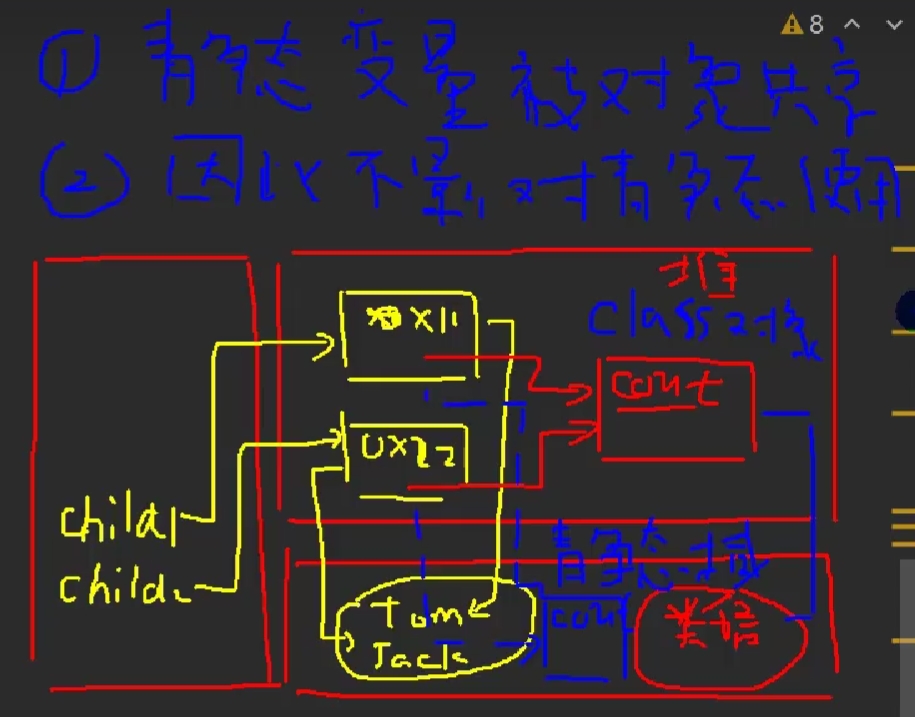 8
① 静态变量被对象共享
② 因此不影响对静态使用
堆
class对象
0X11
count
0X22
child1
child2
静态域
Tom
Jack
coun
类信息